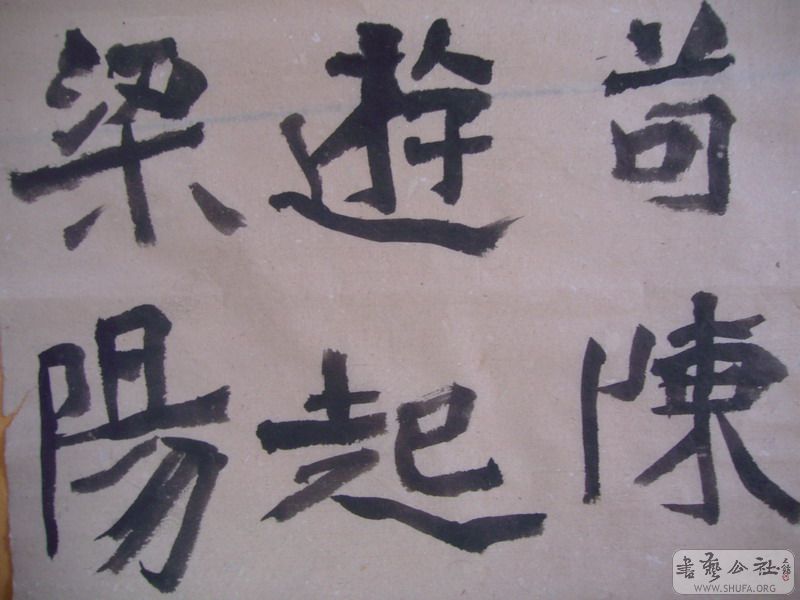 苟陳
遊起
梁陽
書藝公社
WWW.SHUFA.ORG